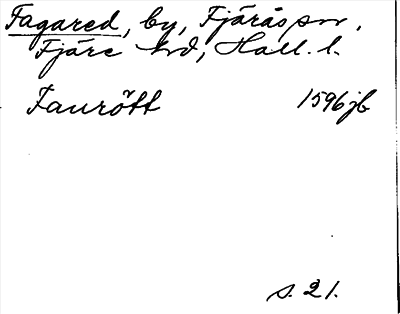 Fagared, by, Fjärås sn,
Fjäre hd, Hall. l.
Faurött 1596 jb
s. 21.